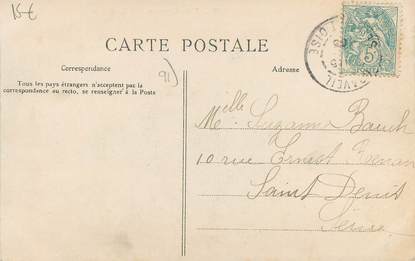 15€
CARTE POSTALE
Correspondance
91
Adresse
Tous les pays étrangers n'acceptent pas la
correspondance au recto, se renseigner à la Poste
Mlle Suzanne Bauch
10 rue Ernest Renan
Saint Denis
Seine